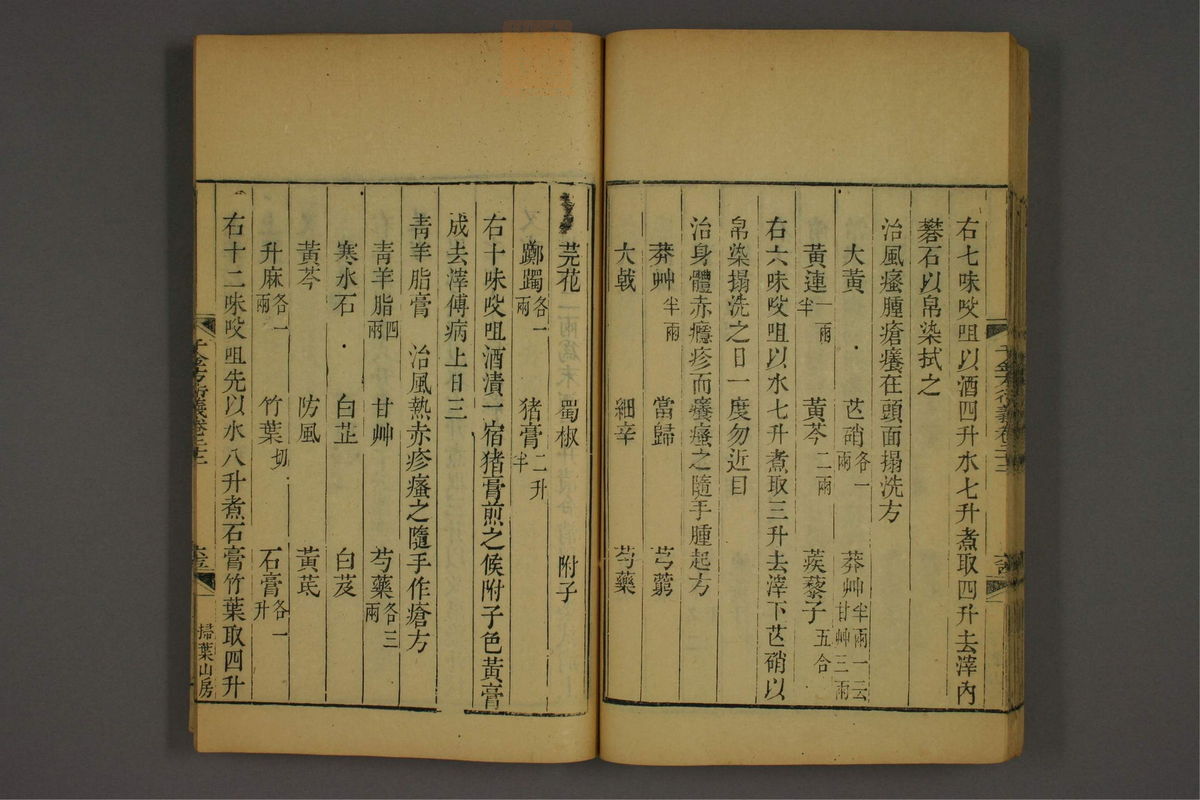 右七味㕮咀以酒四升水七升煮取四升去滓內
礬石以帛染拭之
治風瘙腫瘡癢在頭面搨洗方
大黃 芒硝各一兩 莽艸半兩一云甘艸三兩
黃連一兩半 黃芩二兩 蒺藜子五合
右六味㕮咀以水七升煮取三升去滓下芒硝以
帛染搨洗之日一度勿近目
治身體赤癮疹而癢瘙之隨手腫起方
莽艸半兩 當歸 芎藭
大戟 細辛 芍藥
芫花 蜀椒 附子
躑躅各一兩 猪膏二升半
右十味㕮咀酒漬一宿猪膏煎之候附子色黃膏
成去滓傅病上日三
青羊脂膏 治風熱赤疹瘙之隨手作瘡方
青羊脂四兩 甘艸 芍藥各三兩
寒水石 白芷 白芨
黃芩 防風 黃芪
升麻各一兩 竹葉切 石膏各一升
右十二味㕮咀先以水八升煮石膏竹葉取四升
千金方衍義卷二十二
掃葉山房